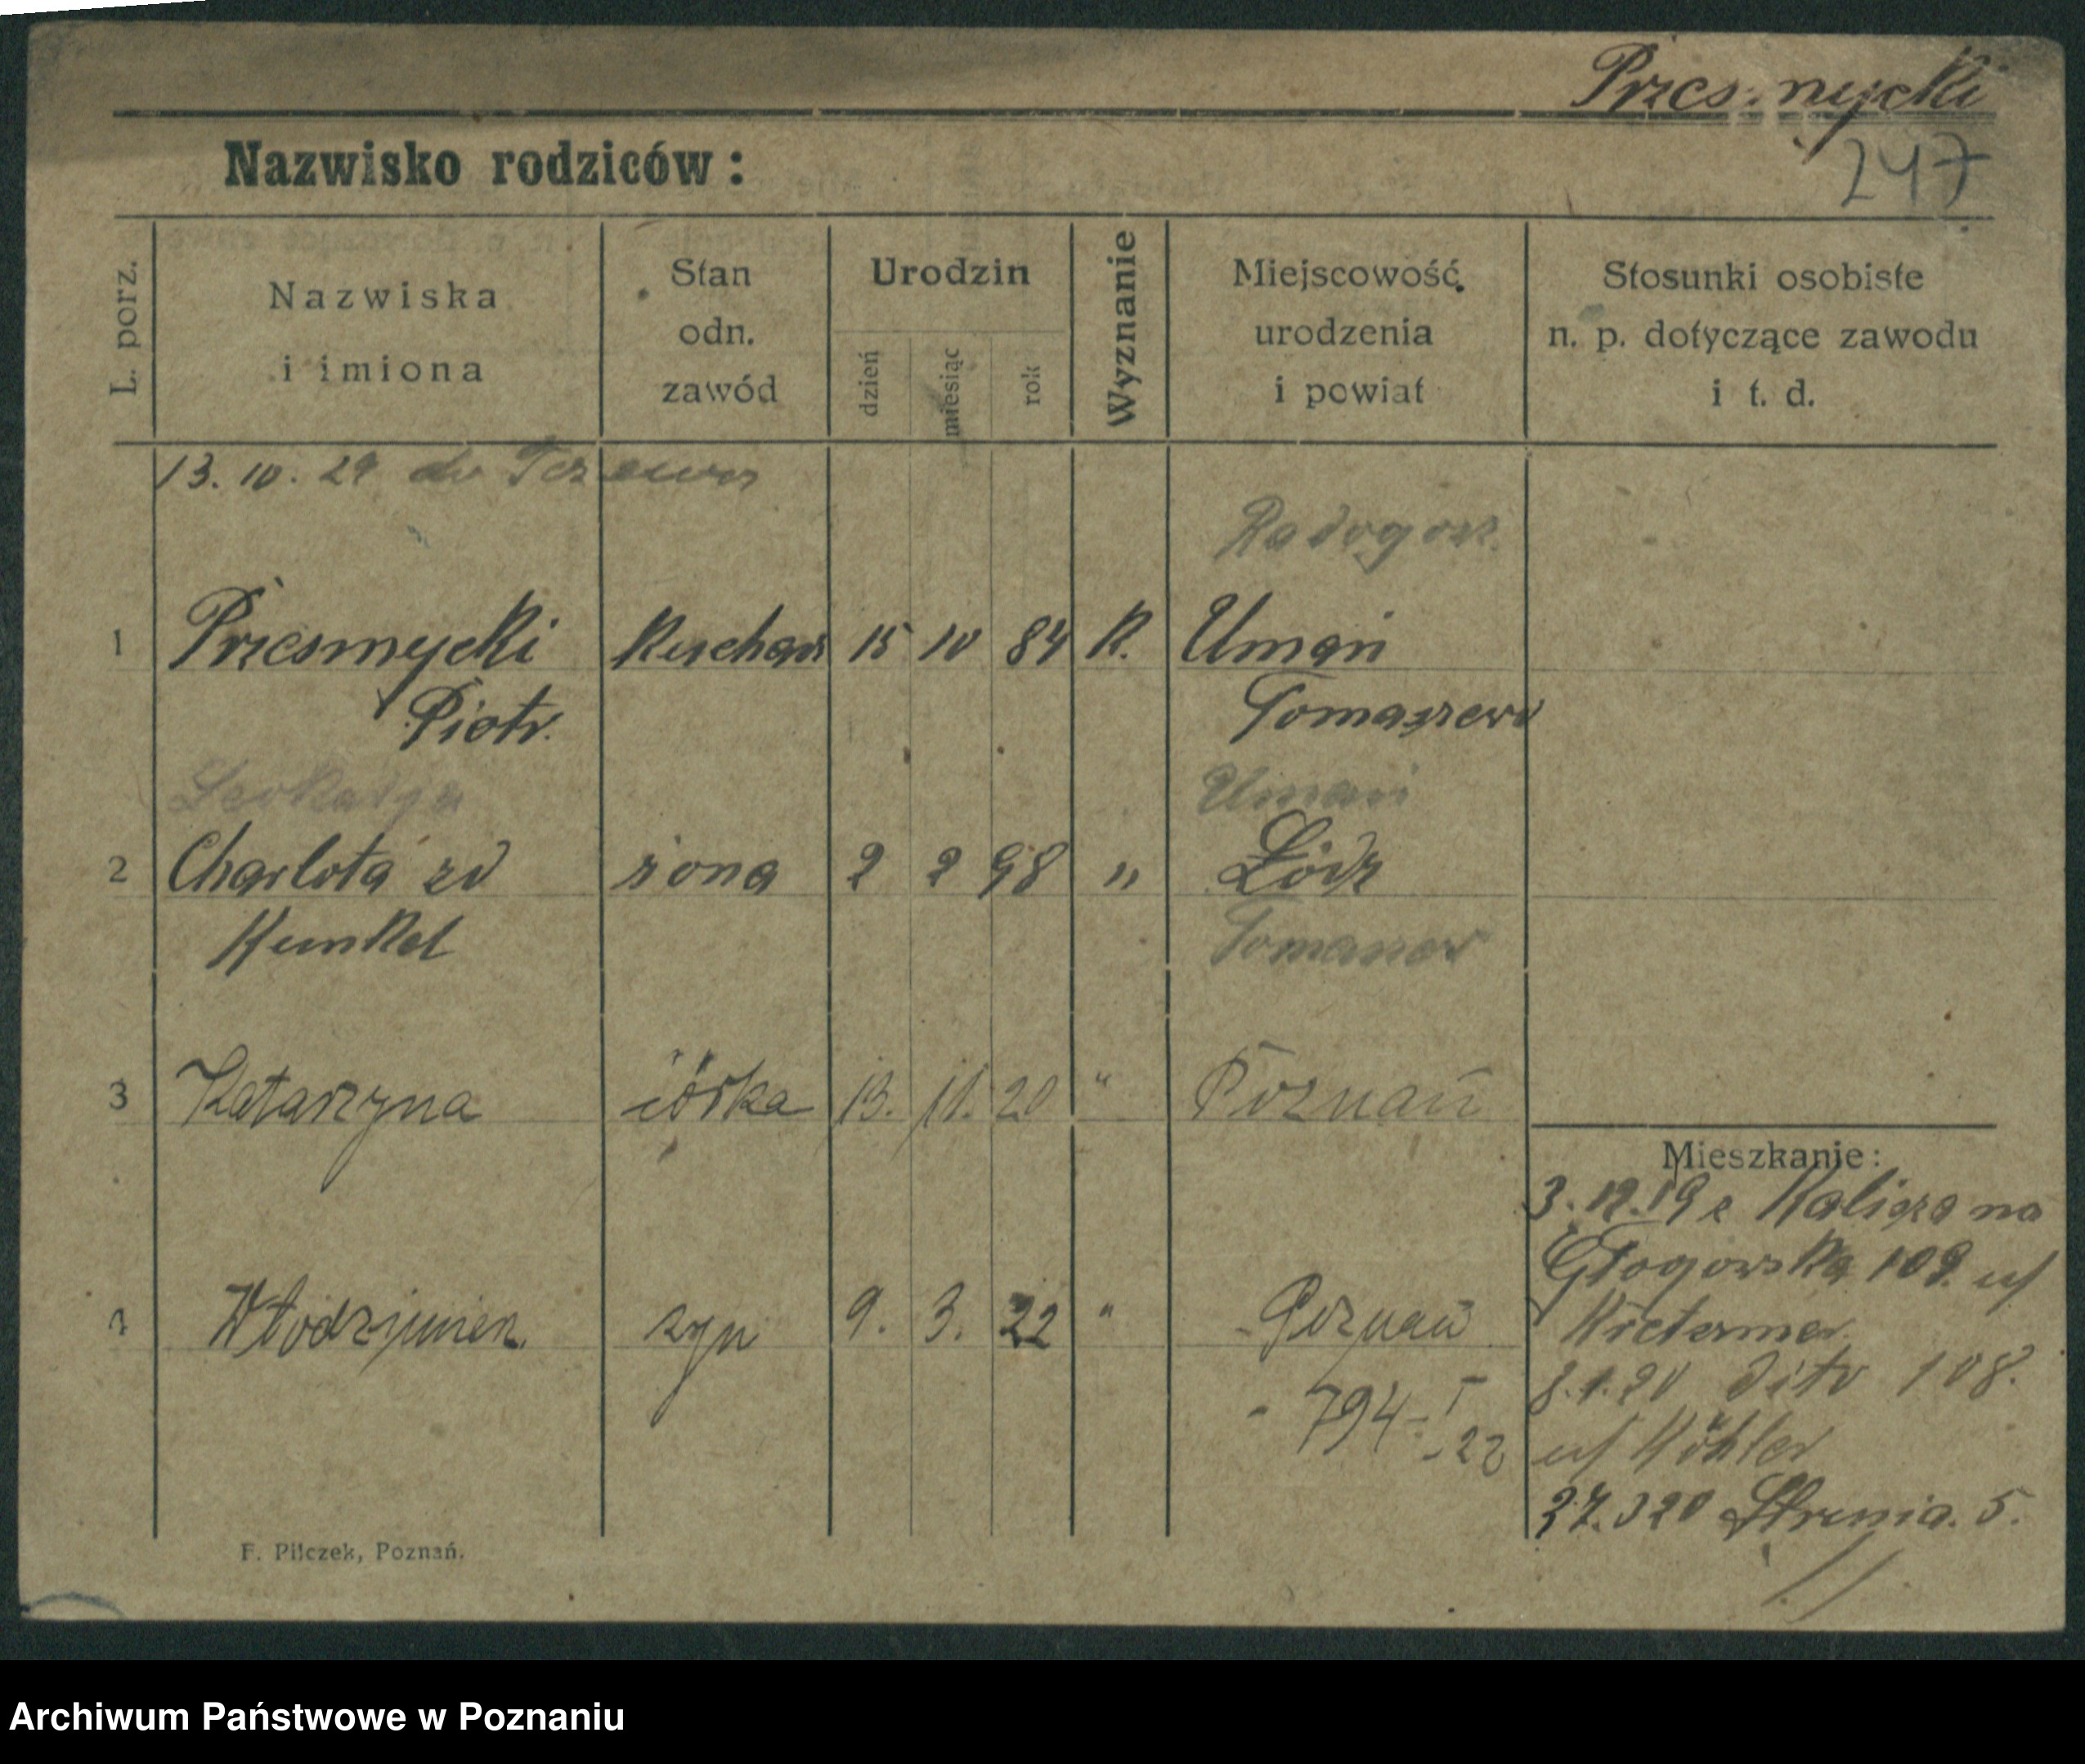 Przesmycki
247
Nazwisko rodziców:
L. porz.
Nazwiska
i imiona
Stan
odn.
zawód
Urodzin
dzień
miesiąc
rok
Wyznanie
Miejscowość
urodzenia
i powiat
Stosunki osobiste
n. p. dotyczące zawodu
i t. d.
13. 10. 29 do Tczewa
Radogoszcz
1 Przesmycki Kucharz 15 10 84 K. Umań
Piotr. Tomaszew
Leokadja Umań
2 Charlota zd żona 2 2 98 " Łódź
Kunkel Tomaszew
3 Katarzyna córka 13. 11. 20 " Poznań
4 Włodzimierz syn 9. 3. 22 " Poznań
- 794 - I
- 22
Mieszkanie:
3.12.19 z Kalisza na
Głogowska 109. u/
8.1.20 dito 108.
u/ Köhler
27.3 20 5.
F. Pilczek, Poznań.
Archiwum Państwowe w Poznaniu